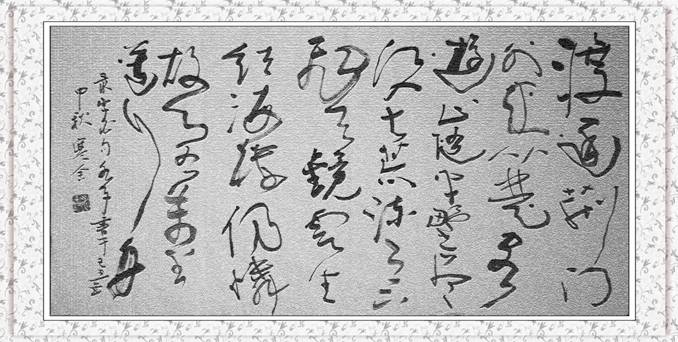 渡遠荊門
外来從楚國
遊山随平野尽
江入大荒流月下
飛天鏡雲生
結海樓仍憐
故鄉水萬里
送行舟
書于己丑
中秋寒舍